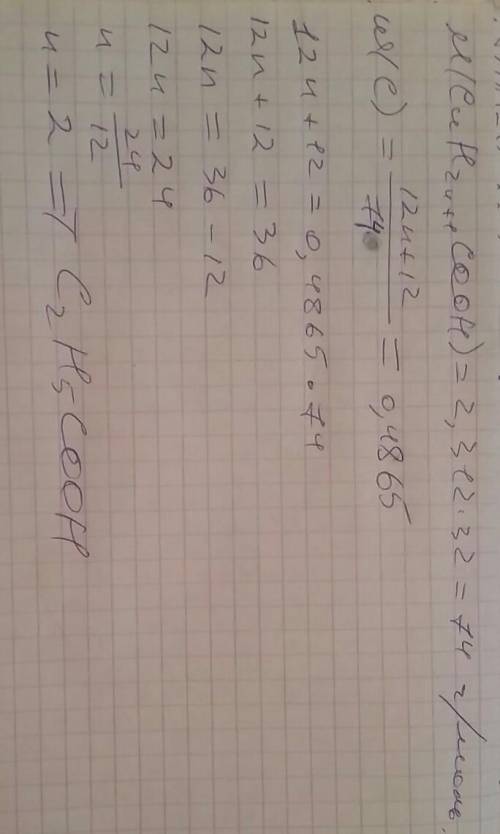 M(CnH2n+1COOH) = 2,312·32 = 74 г/моль.
ω(C) = (12n+12)/74 = 0,4865
12n+12 = 0,4865·74
12n+12 = 36
12n = 36-12
12n = 24
n = 24/12
n = 2 => C2H5COOH